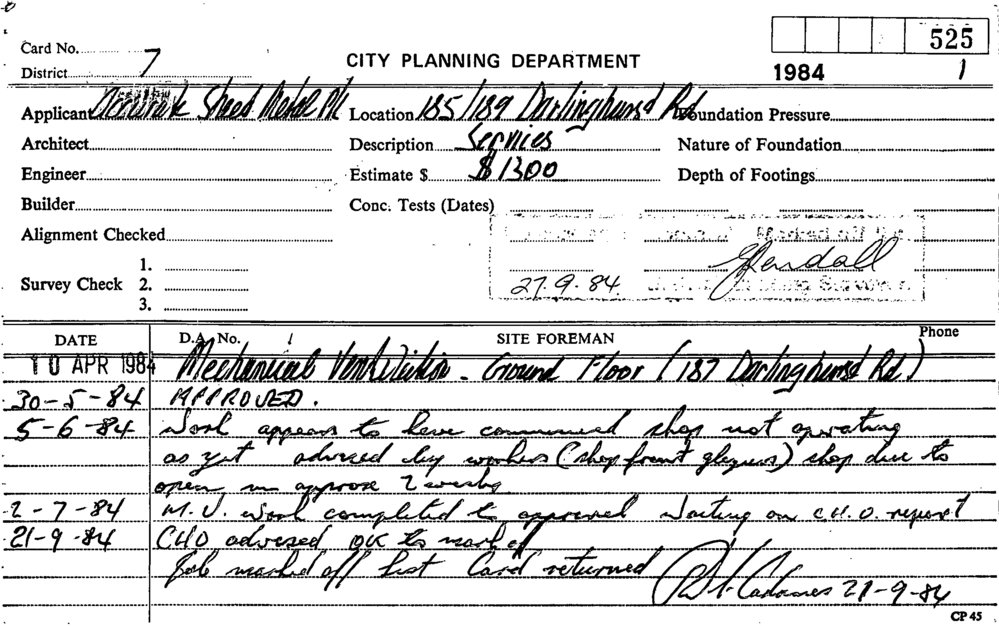 525
Card No. 7
CITY PLANNING DEPARTMENT
1984 1
District
Applicant Sheet Metal P/L Location 185/189 Darlinghurst Rd Foundation Pressure
Architect Description Services Nature of Foundation
Engineer Estimate $ $1300 Depth of Footings
Builder Conc. Tests (Dates)
Alignment Checked
1.
Survey Check 2. 27.9.84 Kendall
3.
DATE D.A. No. SITE FOREMAN Phone
10 APR 1984 Mechanical Ventilation - Ground Floor (187 Darlinghurst Rd)
30-5-84 APPROVED.
5-6-84 Work appears to have commenced shop not operating
as yet advised by workers (shop front glaziers) shop due to
open in approx 2 weeks
2-7-84 M.V. work completed to approval Waiting on C.H.O. report
21-9-84 CHO advised OK to mark off
Job marked off list Card returned 21-9-84
CP 45